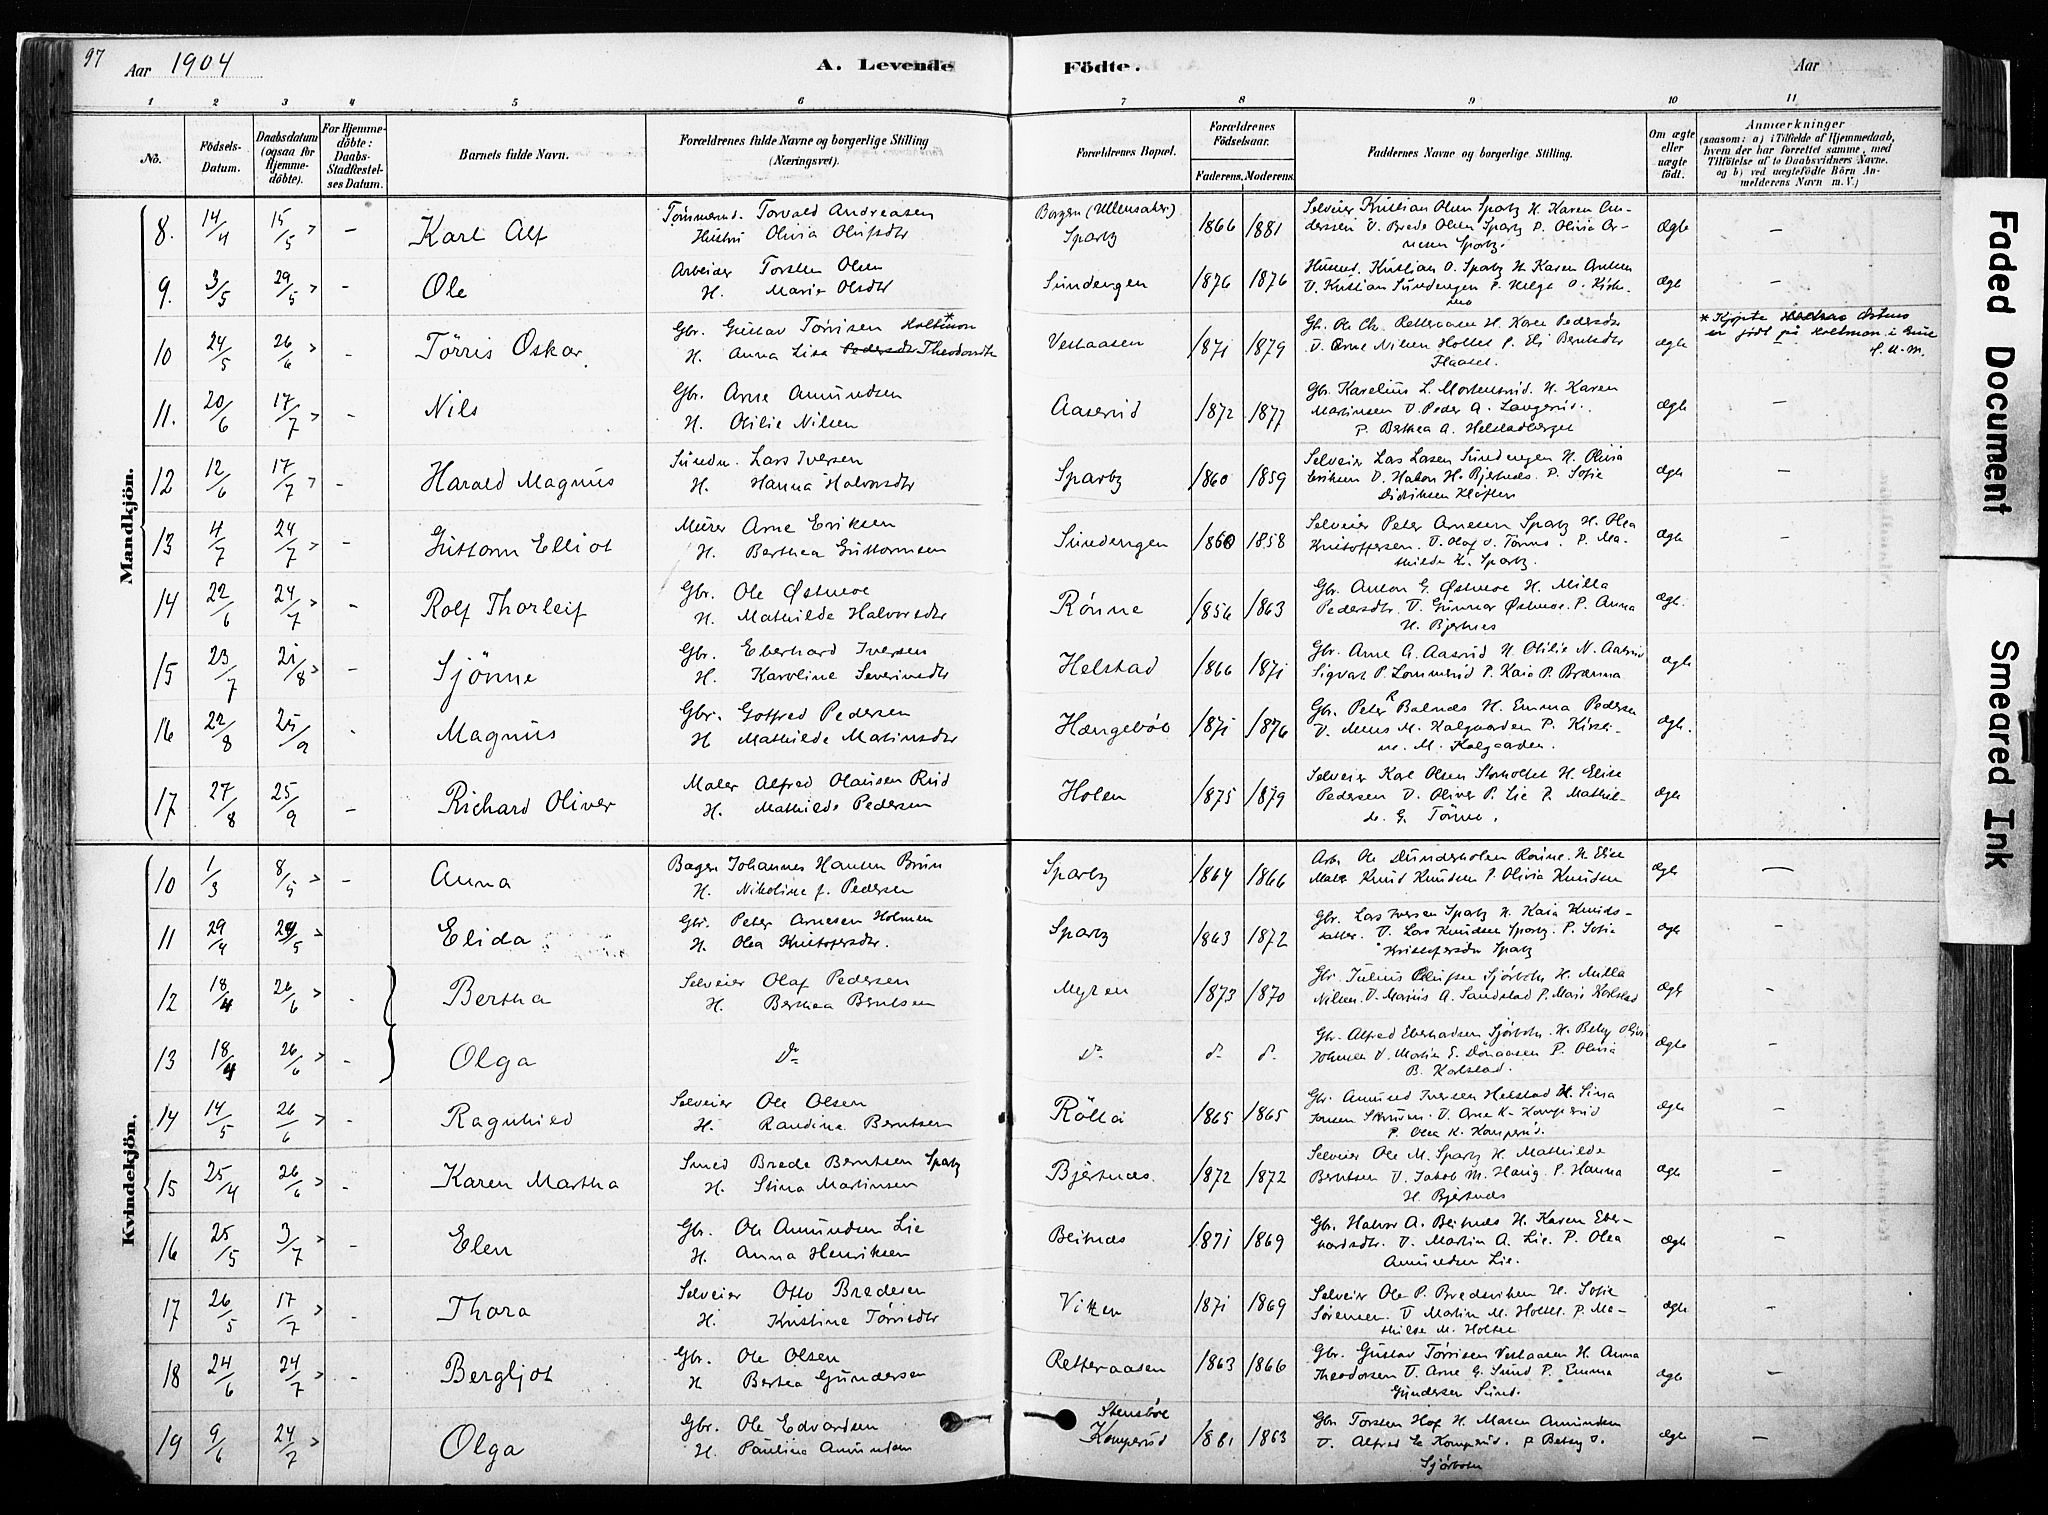 97
Aar 1904
A. Levende Födte.
Aar
1 2 3 4 5 6 7 8 9 10 11
No.
Födsels-Datum.
Daabsdatum (ogsaa for Hjemme-döbte).
For Hjemme-döbte: Daabs-Stadfæstelses Datum.
Barnets fulde Navn.
Forældrenes fulde Navne og borgerlige Stilling (Næringsvei).
Forældrenes Bopæl.
Forældrenes Födselsaar.
Faderens. Moderens.
Faddernes Navne og borgerlige Stilling.
Om ægte eller uægte födt.
Anmærkninger
(saasom: a) i Tilfælde af Hjemmedaab, hvem der har forrettet samme, med Tilföielse af to Daabsvidners Navne. og b) ved uægtefödte Börn Anmelderens Navn m. V.)
Mandkjön.
8. 14/4 15/5 - Karl Alf
Tømmermd. Torvald Andreasen
Hustru Olivia Olufsdtr
Borgen (Ullensaker) Spartz 1866 1881
Selveier Kristian Olsen Spartz H. Karen An-
derssen V. Brede Olsen Spartz P. Olivia Ar-
nesen Spartz.
Ægte -
9. 3/5 29/5 - Ole
Arbeider Torsten Olsen
H. Marie Olsdtr
Sundengen 1876 1876
Husmd. Kristian O. Spartz H. Karen
V. Kristian Sundengen P. Helga O.
Ægte -
10 24/5 26/6 - Törris Oskar
Gbr. Gustav Törrisen Holtmon*
H. Anna Lisa Pedersdtr Theodorsdtr
Vestaasen 1871 1879
Gb. Ole Ch. Retteraasen H. Karen Pedersdtr
V. Arne Nilsen Holtet P. Eli Berntsdtr
Ægte
er født på Holtmon i
11. 20/6 17/7 - Nils
Gbr. Arne Amundsen
H. Otilie Nilsen
Aaserud 1872 1877
Gbr. Karelius L. Mortensrud. H. Karen
Martinsen V. Peder A. Langerud.
P. Berthea A. Helstadberget
Ægte -
12 12/6 17/7 - Harald Magnus
Lars Iversen
H. Hanna Halvorsdtr
Spartz 1860 1859
Selveier Lars Larsen Sundengen H. Olivia
Eriksen V. Hakon H. Bjertnæs. P. Sofie
Didriksen Kløften
Ægte -
13 4/7 24/7 - Guttorm Elliot
Murer Arne Eriksen
H. Berthea Guttormsen
Sundengen 1860 1858
Selveier Peter Arnesen Spartz H. Olea
Kristoffersen. V. Olaf O. P. Ma-
thilde K. Spartz.
Ægte -
14 22/6 24/7 - Rolf Thorleif
Gbr. Ole Østmoe
H. Mathilde Halvorsdtr
Rönne 1856 1863
Gbr. Anton G. Østmoe H. Milla
Pedersdtr. V. Gunnar Østmoe. P. Anna
H. Bjertnes
Ægte.
15 23/7 21/8 - Sjönne
Gbr. Eberhard Iversen
H. Karoline Severinsdtr
Helstad 1866 1871
Gbr. Arne A. Aaserud H. Otilie N. Aaserud
Sigvart P. Lommerud P. Kaia P. Brænna
Ægte
16 22/8 25/9 - Magnus
Gbr. Gotfred Pedersen
H. Mathilde Martinsdtr
Hængebøl 1871 1876
Gbr. Peter R Bolnæs H. Emma Pedersen
V. M. Kalgaarden P. Kirsti-
ne M. Kalgaarden.
Ægte.
17 27/8 25/9 - Richard Oliver
Maler Alfred Olausen Rud
H. Mathilde Pedersen
Holen 1875 1879
Selveier Karl Olsen Storholtet H. Elise
Pedersen V. Oliver P. Lie P. Mathil-
de G.
Ægte
Kvindekjön.
10 1/3 8/5 - Anna
Bager Johannes Hansen Brun
H. Nikoline f. Pedersen
Spartz 1864 1866
Arb. Ole Dunderholen Rönne. H. Elise
Knud Knudsen P. Olivia Knudsen
Ægte -
11 29/4 29/5 Elida
Gbr. Peter Arnesen Holmen
H. Olea Kristofersdtr.
Spartz 1863 1872
Gbr. Lars Iversen Spartz H. Kaia Knuds-
datter. V. Lars Knudsen Spartz. P. Sofie
Kristofersdtr Spartz
Ægte -
12 18/4 26/6 - Bertha
Selveier Olaf Pedersen
H. Berthea Berntsen
Myren 1873 1870
Gbr. Julius Olufsen Sjörbotn H. Milla
Nilsen. V. Marius A. Sandstad P. Marie Karlstad
Ægte -
13 18/4 26/6 - Olga
Do Do do do
Gbr. Alfred Eberhadsen Sjörbotn. H. Betzy
Johnsen V. Martin E. Dönaasen P. Olivia
B. Karlstad.
Ægte -
14 14/5 26/6 - Ragnhild
Selveier Ole Olsen
H. Randina Berntsen
Rölla 1865 1865
Gbr. Amund Iversen Helstad H. Sina
Jonsen V. Arne K. Komperud
P. Olea K. Komperud.
Ægte -
15 25/4 26/6 - Karen Martha
Smed Brede Berntsen Spartz
H. Stina Martinsen
Bjertnæs. 1872 1872
Selveier Ole M. Spartz H. Mathilde
Berntsen V. Jakob M. Haug. P. Hanna
H. Bjertnæs
Ægte -
16 25/5 3/7 - Elen
Gbr. Ole Amundsen Lie
H. Anna Henriksen
Beitnæs 1871 1869
Gbr. Halvor A. Beitnæs H. Karen Eber-
hardsdtr. V. Martin A. Lie. P. Olea
Amundsen Lie.
Ægte -
17 26/5 17/7 - Thora
Selveier Otto Bredesen
H. Kristine Törrisdtr
Viken 1871 1869
Selveier Ole P. Bredeviken H. Sofie
Sörensen. V Martin M. Holtet. P. Ma-
thilde M. Holtet
Ægte -
18 24/6 24/7 - Bergljot
Gbr. Ole Olsen
H. Berthea Gundersen
Retteraasen 1863 1866
Gbr. Gustav Törrisen Vestaasen H. Anna
Theodorsen V. Arne G. Sund P. Emma
Gundersen Sund.
Ægte -
19 9/6 24/7 Olga
Gbr. Ole Edvardsen
H. Pauline Amundsen
Stensböl Komperud 1861 1863
Gbr. Torsten Hof H. Maren Amundsen
V. Alfred E. Komperud. P Betzy O.
Sjörbotn
Ægte -
Faded Document
Smeared Ink